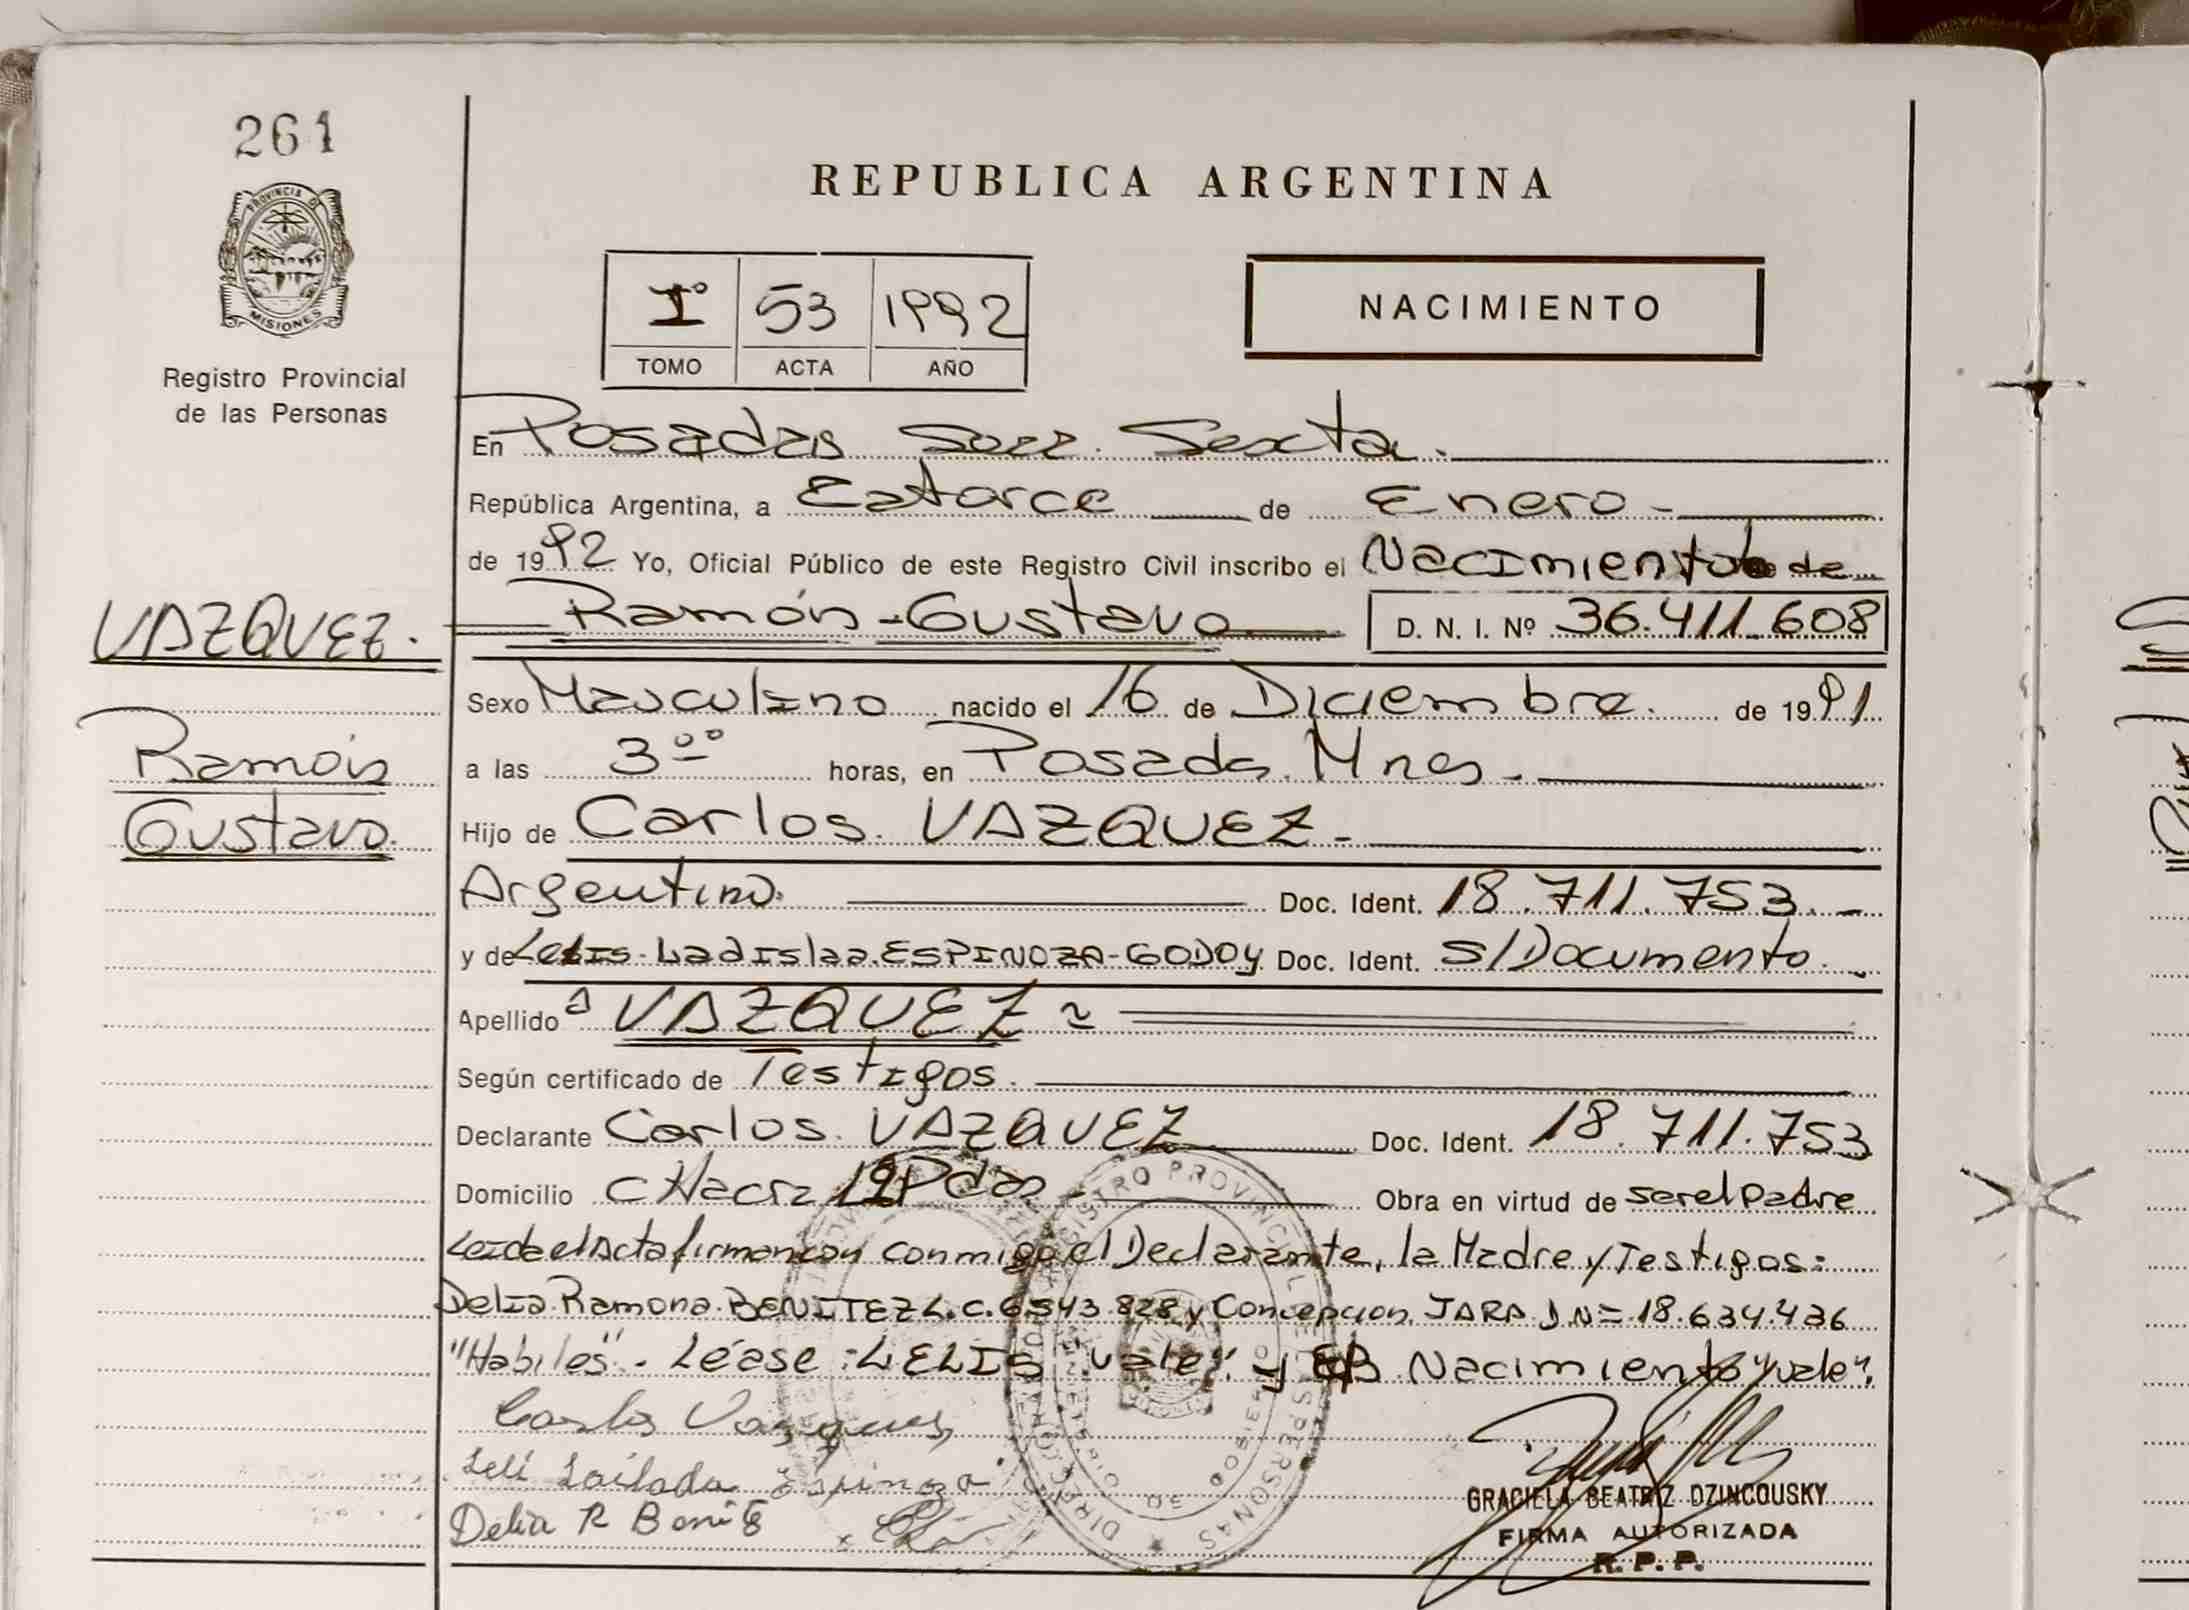 261
PROVINCIA D
MISIONES
Registro Provincial
de las Personas
REPUBLICA ARGENTINA
Iº 53 1992
TOMO ACTA AÑO
NACIMIENTO
En Posadas Secc. Sexta.
República Argentina, a Catorce de Enero
de 1992 Yo, Oficial Público de este Registro Civil inscribo el Nacimiento de
VAZQUEZ. Ramón Gustavo D. N. I. Nº 36.411.608
Sexo Masculino nacido el 16 de Diciembre. de 1991
Ramón a las 3⁰⁰ horas, en Posadas. Mnes.
Gustavo. Hijo de Carlos. VAZQUEZ
Argentino. Doc. Ident. 18.711.753.
y de Lelis Ladislaa ESPINOZA-GODOY Doc. Ident. S/Documento.
Apellido a VAZQUEZ
Según certificado de Testigos.
Declarante Carlos. VAZQUEZ Doc. Ident. 18.711.753
Domicilio CHacra Pdas Obra en virtud de ser el Padre
Leida el Acta firman con conmigo el Declarante, la Madre y Testigos:
Delia Ramona BENITEZ L.C. 6543.828 y Concepcion JARA D N= 18.634.436
"Habiles". Léase: LELIS "vale" y Nacimiento "vale".
Carlos Vazquez
Espinoza
Delia R Benite
REGISTRO PROVINCIAL DE LAS PERSONAS
GRACIELA BEATRIZ DZINCOUSKY
FIRMA AUTORIZADA
R. P. P.